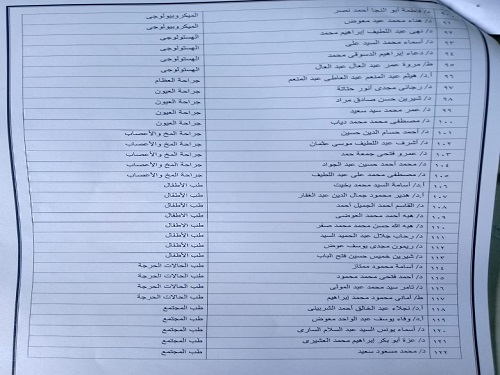 د/ فاطمة أبو النجا أحمد نصر الميكروبيولوجى
٩١ د/ هناء محمد عبد معوض الميكروبيولوجى
٩٢ د/ نهى عبد اللطيف إبراهيم محمد الهستولوجى
٩٣ د/ أسماء محمد السيد على الهستولوجى
٩٤ د/ دعاء إبراهيم الدسوقى محمد الهستولوجى
٩٥ ط/ مروة عمر عبد العال عبد العال الهستولوجى
٩٦ أ.د/ هيثم عبد المنعم عبد العاطى عبد المنعم جراحة العظام
٩٧ د/ رجائى مجدى أنور حتاتة جراحة العيون
٩٨ د/ شيرين حسن صادق مراد جراحة العيون
٩٩ د/ عمر محمد سيد سعيد جراحة العيون
١٠٠ د/ مصطفى محمد محمد دياب جراحة العيون
١٠١ د/ أحمد حسام الدين حسين جراحة المخ والأعصاب
١٠٢ د/ أشرف عبد اللطيف موسى عثمان جراحة المخ والأعصاب
١٠٣ د/ عمرو فتحى جمعة حمد جراحة المخ والأعصاب
١٠٤ د/ محمد أحمد حسين عبد الجواد جراحة المخ والأعصاب
١٠٥ د/ مصطفى محمد على عبد اللطيف جراحة المخ والأعصاب
١٠٦ أ.د/ أسامة السيد محمد بخيت طب الأطفال
١٠٧ أ.د/ هدير محمود جمال الدين عبد الغفار طب الأطفال
١٠٨ د/ القاسم أحمد الجميل أحمد طب الأطفال
١٠٩ د/ هبه أحمد محمد العوضى طب الأطفال
١١٠ د/ هبه الله حسن محمد محمد صقر طب الأطفال
١١١ د/ رحاب جلال عبد الحميد السيد طب الأطفال
١١٢ د/ ريمون مجدى يوسف عوض طب الأطفال
١١٣ د/ شيرين خميس حسين فتح الباب طب الأطفال
١١٤ د/ أسامة محمود ممتاز طب الحالات الحرجة
١١٥ د/ أحمد فتحى محمد محمود طب الحالات الحرجة
١١٦ د/ تامر سيد محمد عبد المولى طب الحالات الحرجة
١١٧ ط/ أمانى محمود محمد إبراهيم طب الحالات الحرجة
١١٨ أ.د/ نجلاء عبد الخالق أحمد الشربينى طب المجتمع
١١٩ أ.د/ وفاء يوسف عبد الواحد معوض طب المجتمع
١٢٠ د/ أسماء يونس السيد عبد السلام السارى طب المجتمع
١٢١ د/ عزة أبو بكر إبراهيم محمد العشيرى طب المجتمع
١٢٢ د/ محمد مسعود سعيد طب المجتمع